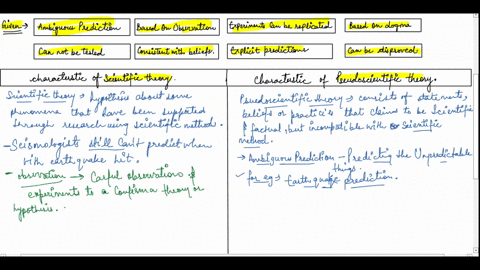 Given →
Ambiguous Prediction
Based on Observation
Experiments Can be replicated
Based on dogma
Can not be tested
Consistent with beliefs
Explicit predictions
Can be disproved
Characterstic of Scientific theory.
Scientific theory → hypothesis about some
phenomena that have been supported
through research using scientific methods.
- Seismologists still Can't predict when
with earthquake hit.
- Observation → Careful observations &
experiments to a Confirm a theory or
hypothesis.
Charactestic of Pseudoscientific theory.
Psuedoscientific theory → consists of statement,
beliefs or practices that claims to be Scientific
& factual, but incompatible with Scientific
method.
→ Ambiguous Prediction → Predicting the Unpredictable
things.
for eg → Earthquake prediction.